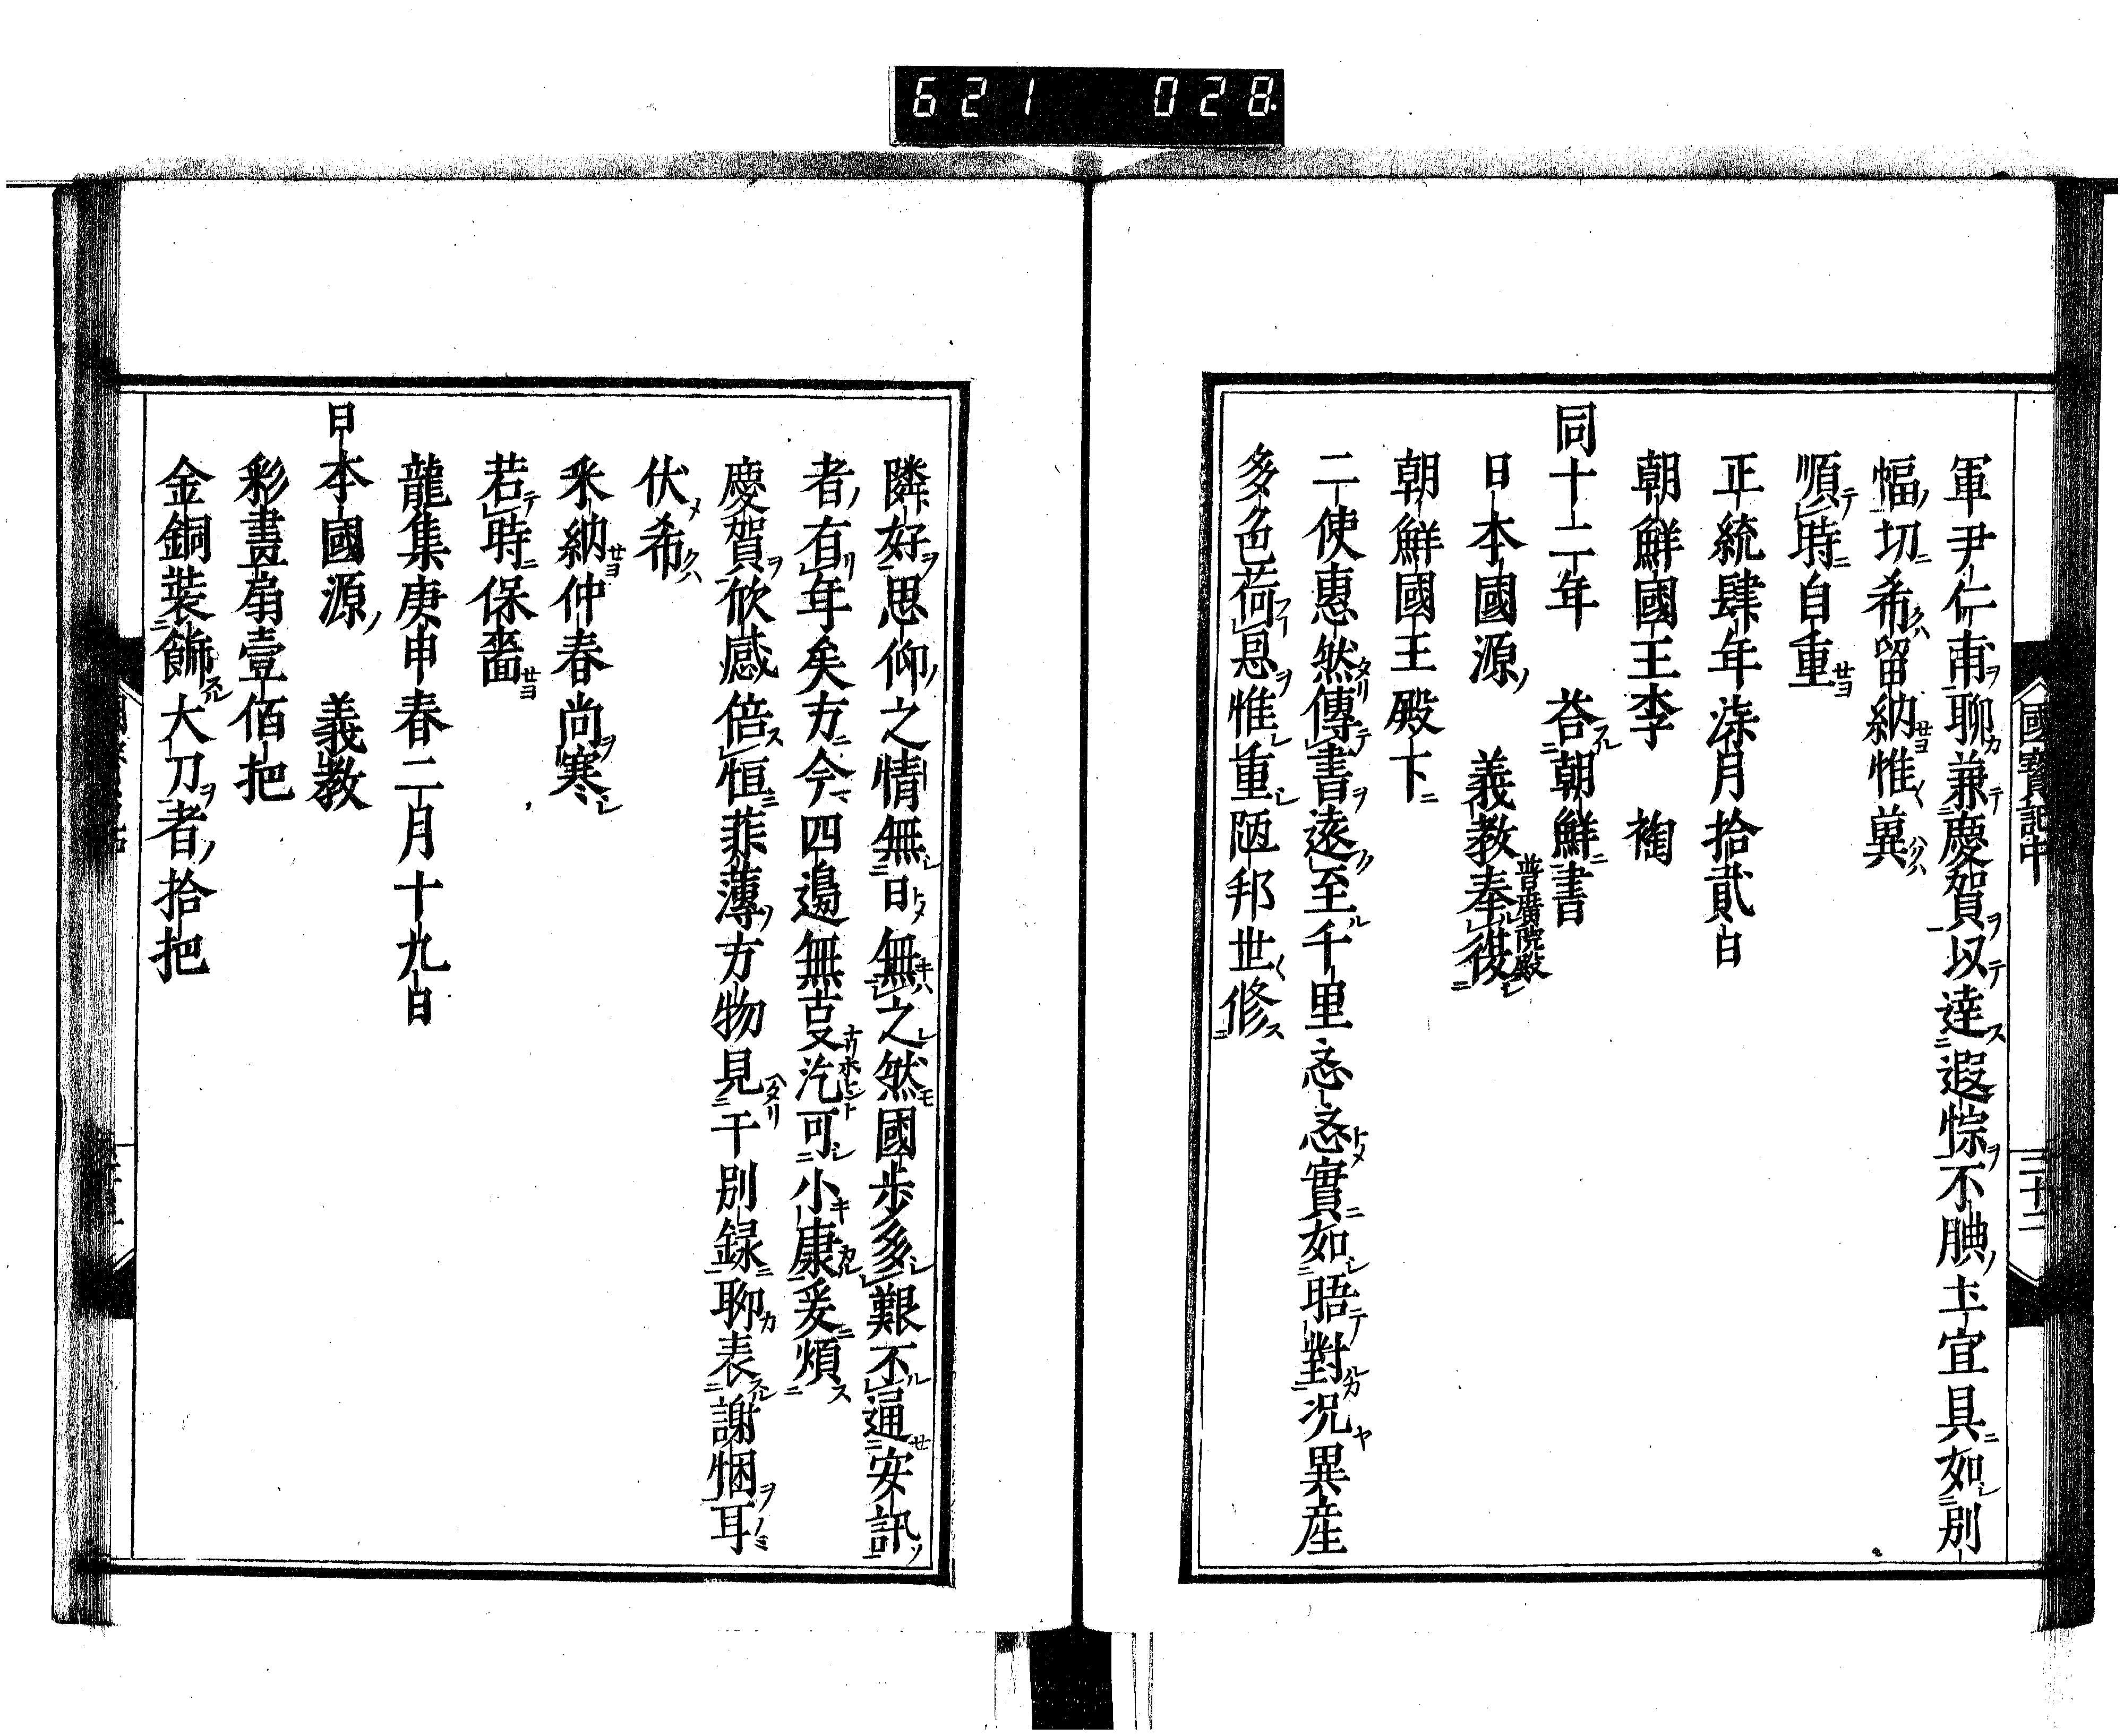 621 028
國寶記中
二十二
軍尹仁甫聊兼慶賀以達遐悰不腆土宜具如別
幅切希留納惟冀
順時自重
正統肆年柒月拾貳日
朝鮮國王李 裪
同十二年 荅朝鮮書
普廣院殿
日本國源 義教奉復
朝鮮國王殿下
二使惠然傳書遠至千里忞忞實如晤對況異産
多色荷恩惟重陋邦世修
隣好思仰之情無日無之然國步多艱不逼安訊
者有年矣方今四邊無叓汔可小康爰煩
慶賀欣感倍恒菲薄方物見于別録聊表謝悃耳
伏希
采納仲春尚寒
若時保嗇
龍集庚申春二月十九日
日本國源 義教
彩畫扇壹佰把
金銅裝飾大刀者拾把